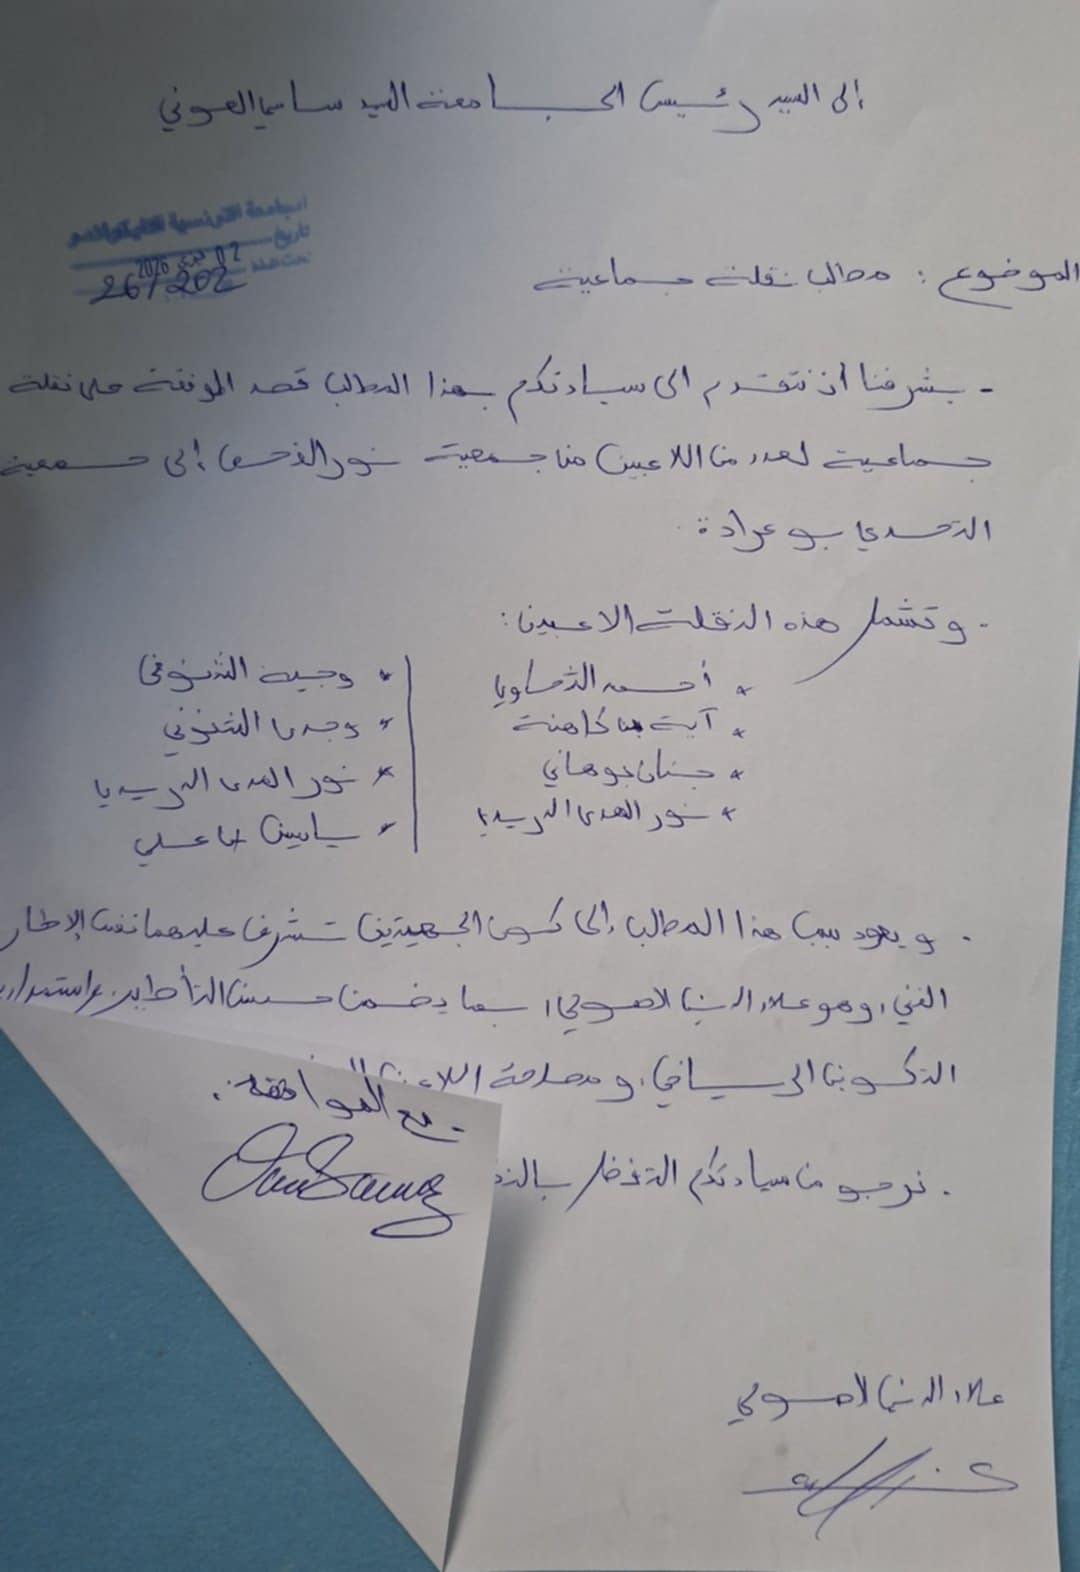 إلى السيد رئيس الجامعة السيد سامي العوني
الجامعة التونسية للتايكواندو
تاريخ 02 2026
تحت عدد 26/202
الموضوع : مطالب نقلة جماعية
- يشرفنا أن نتقدم إلى سيادتكم بهذا المطلب قصد الموفقة على نقلة
جماعية لعدد من اللاعبين من جمعية نور الفحص إلى جمعية
التحدي بوعرادة .
. وتشمل هذه النقلة الاعبين :
* أحمد
* آية بن كاهنة
* جنان جوهاني
* نور الهدى الدريدي
* وجيه الشنوفي
* وجدي الشنوفي
* نور الهدى الدريدي
* ياسين
. ويعود سبب هذا المطلب إلى كون الجمعيتين تشرف عليهما نفس الإطار
الفني ، وهو علاء الدين لاصوفي ، بما يضمن حسن التأطير واستمرارية
التكوين الرياضي ، ومصلحة
. نرجو من سيادتكم التفضل
- مع الموافقة .
علاء الدين لاصوفي